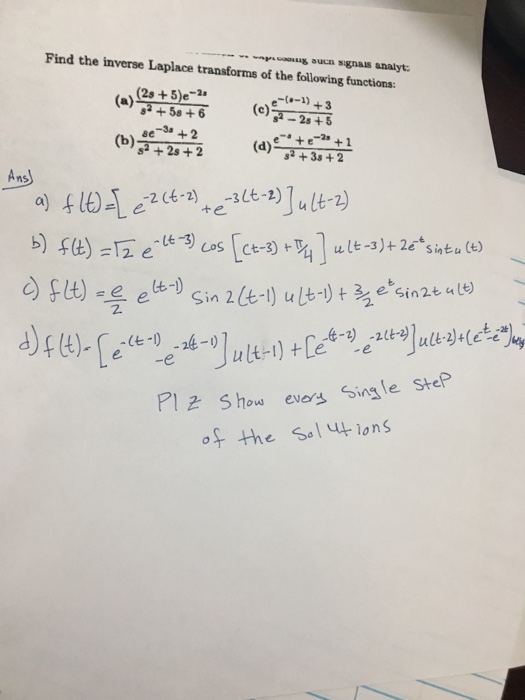 such signals analyt:
Find the inverse Laplace transforms of the following functions:
(a) (2s + 5)e^{-2s} / s² + 5s + 6
(c) e^{-(s-1)} + 3 / s² - 2s + 5
(b) se^{-3s} + 2 / s² + 2s + 2
(d) e^{-s} + e^{-2s} + 1 / s² + 3s + 2
Ans)
a) f(t) = [e^{-2(t-2)} + e^{-3(t-2)}] u(t-2)
b) f(t) = √2 e^{-(t-3)} cos [(t-3) + π/4] u(t-3) + 2e^{-t} sint u(t)
c) f(t) = e/2 e^{(t-1)} sin 2(t-1) u(t-1) + 3/2 e^t sin2t u(t)
d) f(t) = [e^{-(t-1)} - e^{-2(t-1)}] u(t-1) + [e^{-(t-2)} - e^{-2(t-2)}] u(t-2) + (e^{-t} - e^{-2t})
Plz show every single step
of the solutions